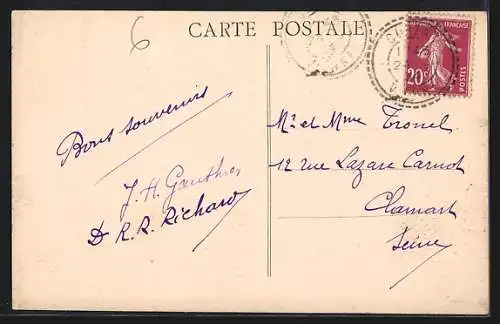 6
CARTE POSTALE
FRANÇAISE
20c
POSTES
Bons souvenirs
J. H. Gauthier
D R. R. Richard
Mr et Mme Tronel
12 rue Lazare Carnot
Clamart
Seine